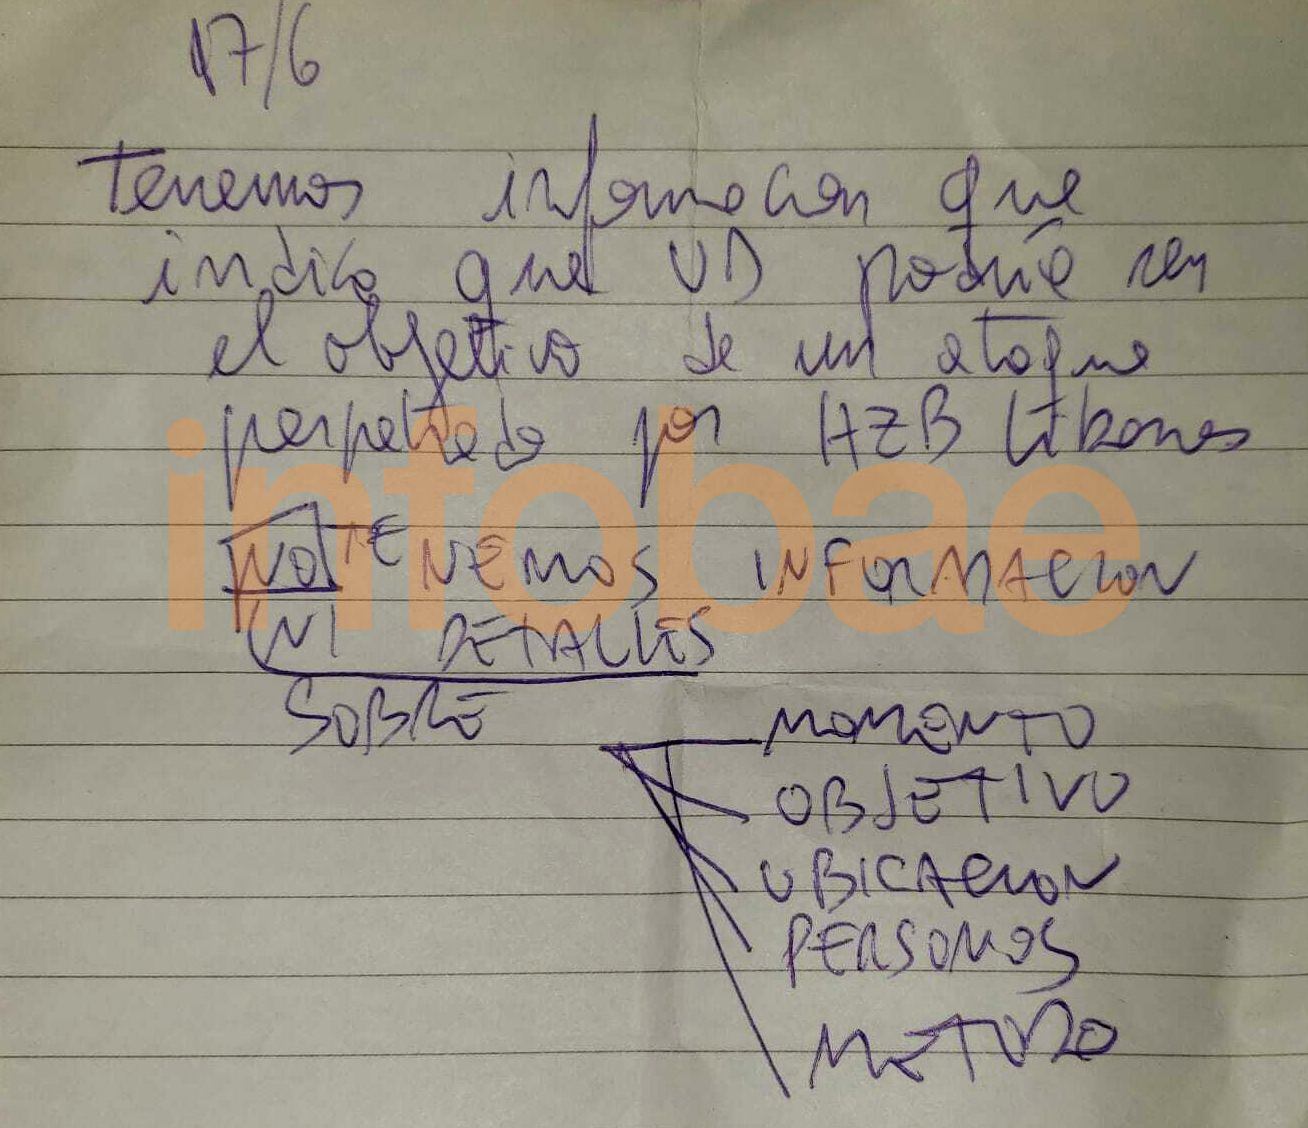 17/6
Tenemos informacion que
indica que UD podría ser
el objetivo de un ataque
perpetrado por HZB Libanes
NO TENEMOS INFORMACION
NI DETALLES
SOBRE
MOMENTO
OBJETIVO
UBICACION
PERSONAS
METODO
infobae